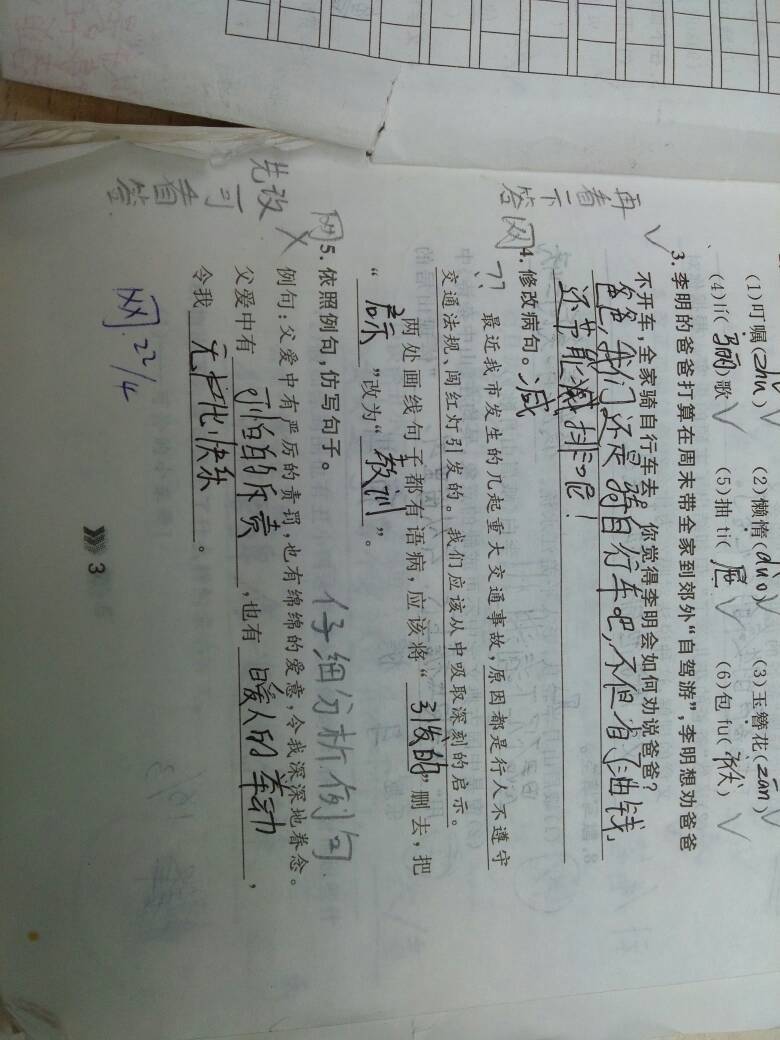 (1)叮嘱(zhǔ) (2)懒惰(duò) (3)玉簪花(zān)
(4)lí(骊)歌 (5)抽tì(屉) (6)包fu(袱)
3. 李明的爸爸打算在周末带全家到郊外“自驾游”,李明想劝爸爸
不开车,全家骑自行车去。你觉得李明会如何劝说爸爸?
爸爸,我们还是骑自行车吧,不但省油钱,
还节能减排呢!
减
4. 修改病句。
最近我市发生的几起重大交通事故,原因都是行人不遵守
交通法规、闯红灯引发的。我们应该从中吸取深刻的启示。
两处画线句子都有语病,应该将“引发的”删去,把
“启示”改为“教训”。
5. 依照例句,仿写句子。
仔细分析例句
例句:父爱中有严厉的责罚,也有绵绵的爱意,令我深深地眷念。
父爱中有 的斥责,也有暖人的举动,
令我无比快乐。
再看一下
答
先改
可看答
22/4
3